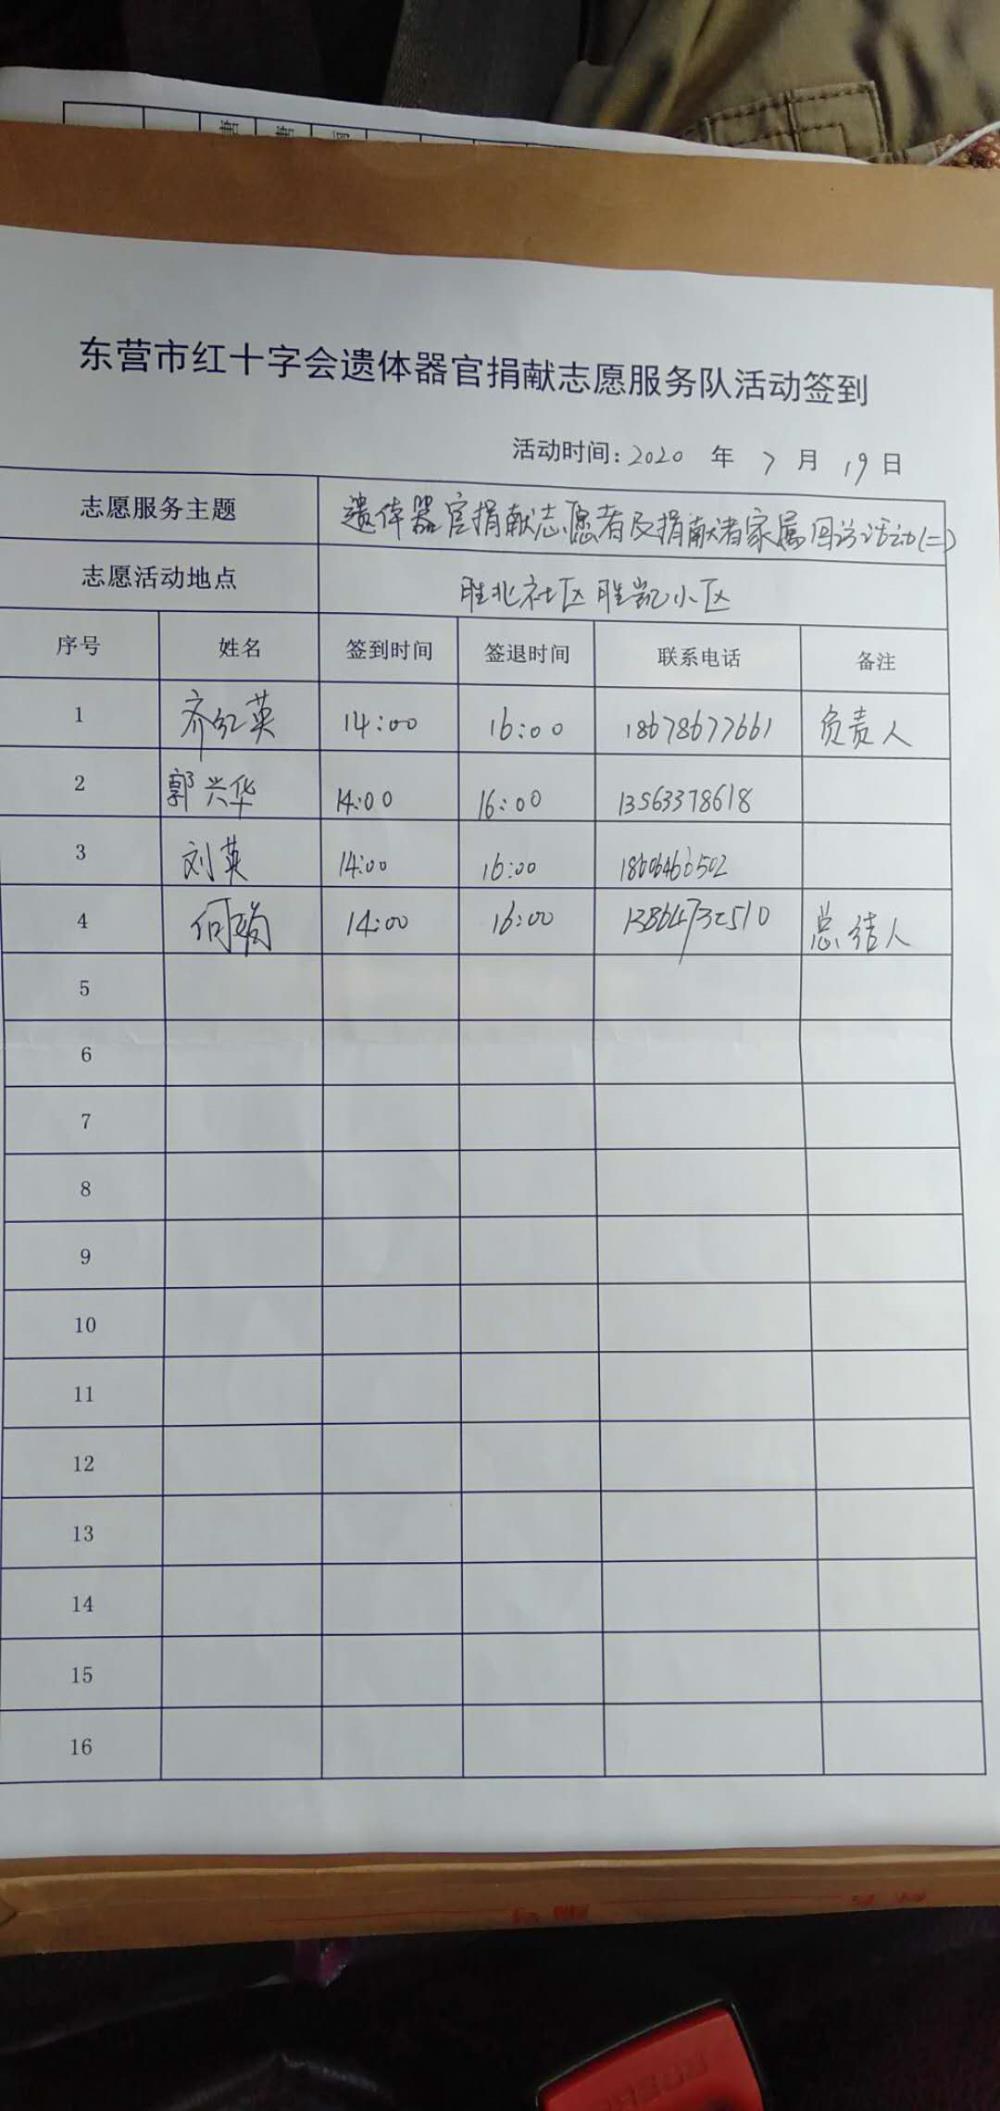 东营市红十字会遗体器官捐献志愿服务队活动签到
活动时间：2020 年 7 月 19 日
志愿服务主题 遗体器官捐献志愿者及捐献者家属回访活动(二)
志愿活动地点 胜北社区胜凯小区
序号 姓名 签到时间 签退时间 联系电话 备注
1 齐红英 14:00 16:00 18678677661 负责人
2 郭兴华 14:00 16:00 13563378618
3 刘英 14:00 16:00
4 14:00 16:00 总结人
5
6
7
8
9
10
11
12
13
14
15
16